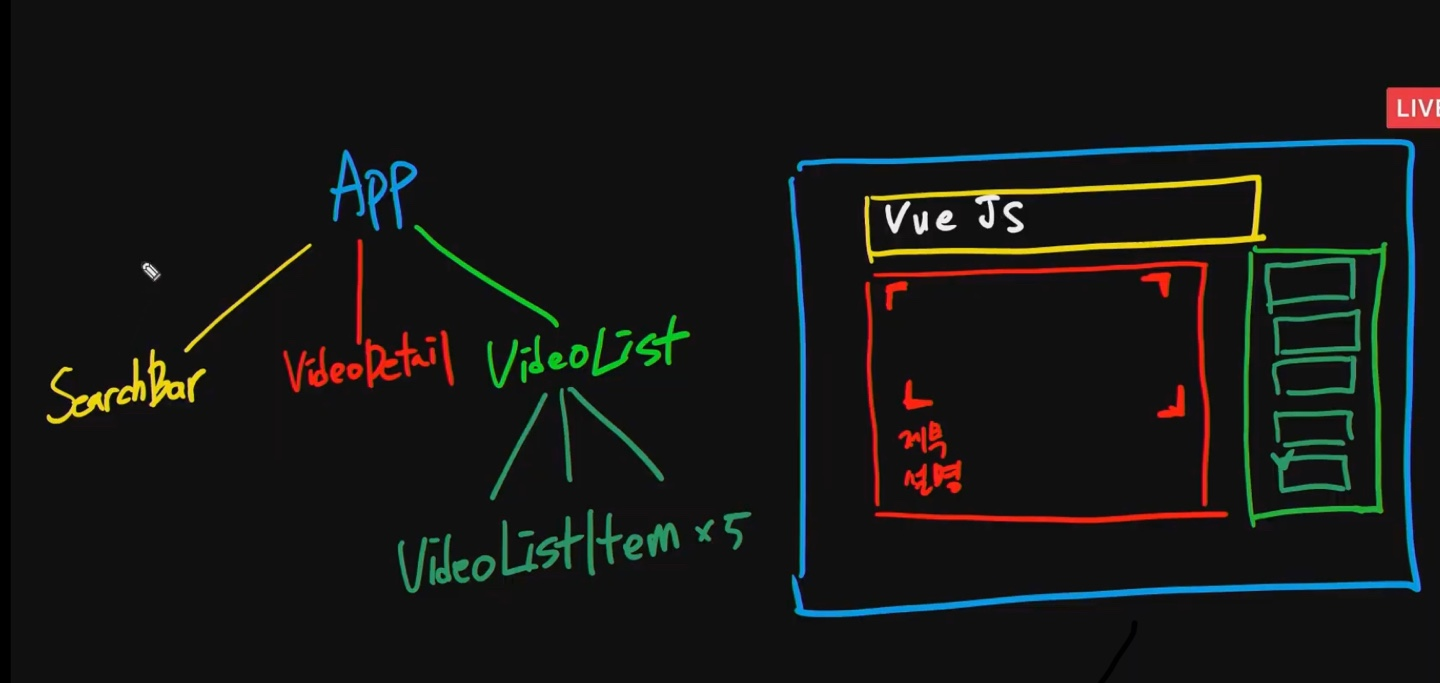 App
SearchBar
VideoDetail
VideoList
VideoListItem x 5
LIVE
Vue JS
제목
설명